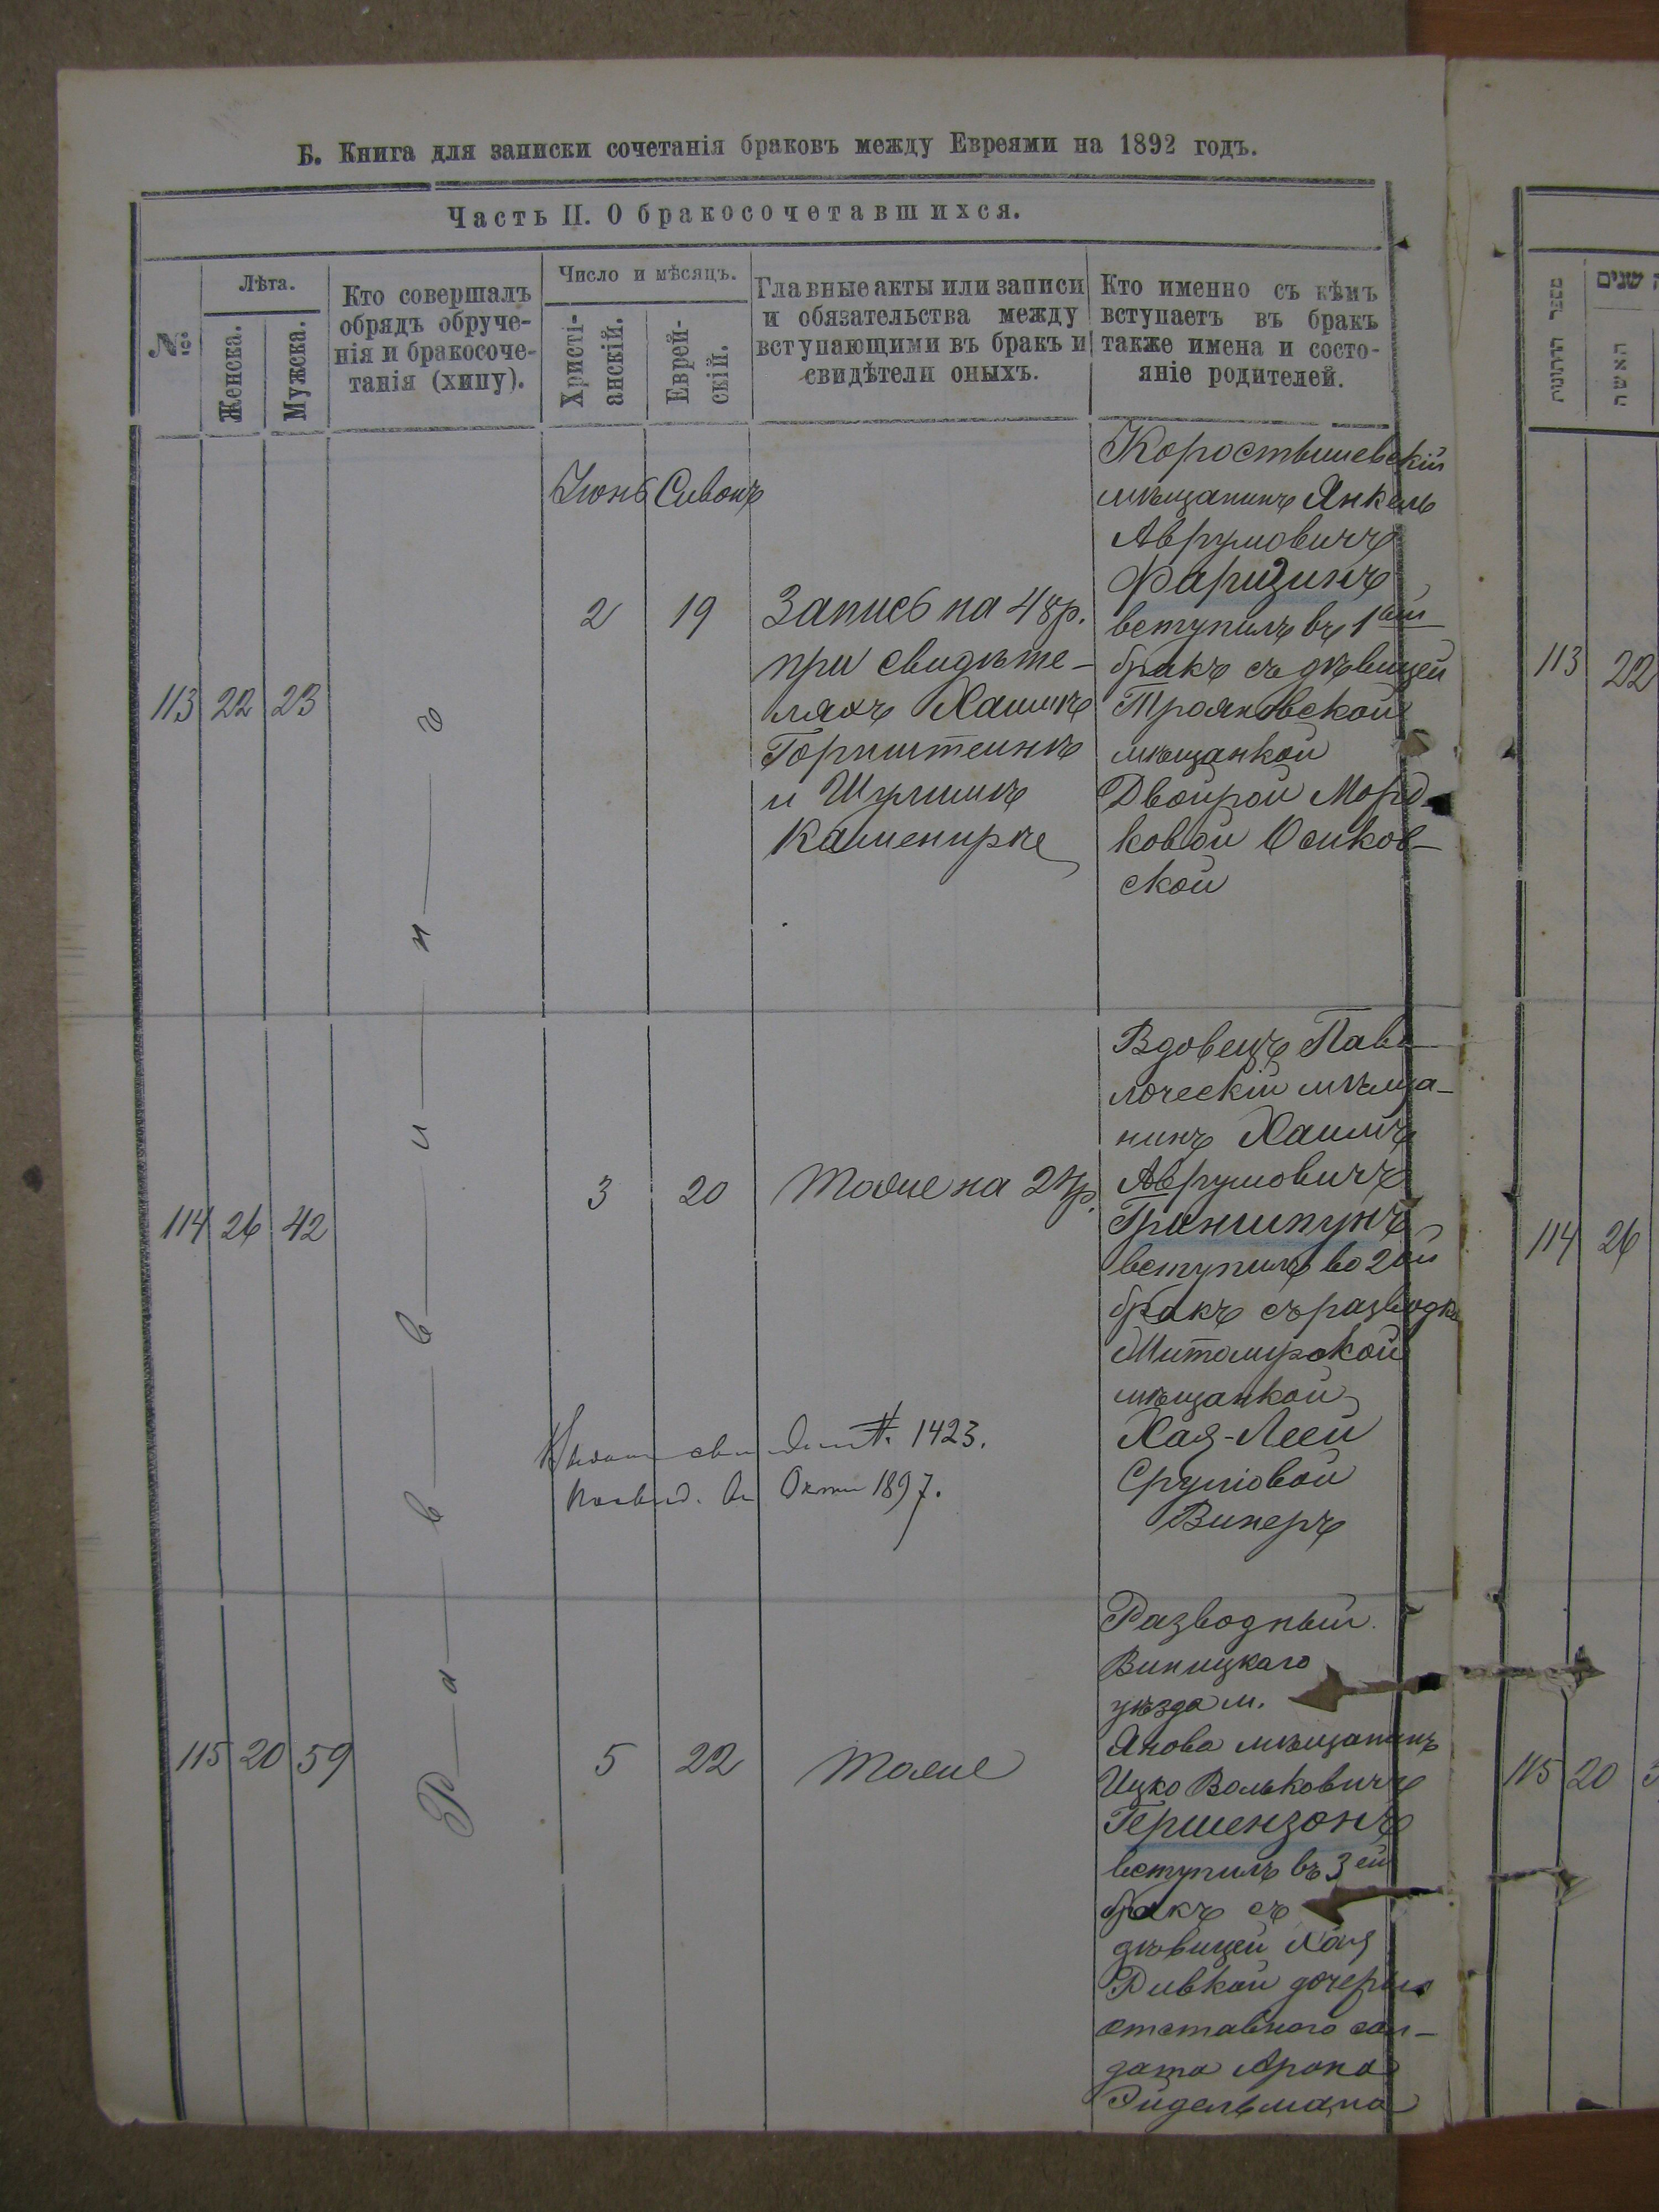 Б. Книга для записки сочетанія браковъ между Евреями на 1892 годъ.
Часть II. О бракосочетавшихся.
№
Лѣта.
Женска.
Мужска.
Кто совершалъ
обрядъ обруче-
нія и бракосоче-
танія (хипу).
Число и мѣсяцъ.
Христі-
анскій.
Еврей-
скій.
Главные акты или записи
и обязательства между
вступающими въ бракъ и
свидѣтели оныхъ.
Кто именно съ кѣмъ
вступаетъ въ бракъ
также имена и состо-
яніе родителей.
Раввинъ
113 22 23
Іюнь Сивонъ
2 19
Запись на 48р.
при свидѣте-
ляхъ Хаимъ
Горнштеинъ
и Шулимъ
Каменирке
Коростышевскій
мѣщанинъ Янкель
Аврумовичъ
Фаризинъ
вступилъ въ 1ый
бракъ съ дѣвицей
Трояновской
мѣщанкой
Двойрой Морд-
ковой Осиков-
ской
114 26 42
3 20
Тоже на 24р.
свид № 1423.
Окт 1897.
Вдовецъ Паво-
лоческій мѣща-
нинъ Хаимъ
Аврумовичъ
вступилъ во 2ой
бракъ съ разводкой
Житомирской
мѣщанкой
Хая-Леей
Сруліовой
Винеръ
115 20 59
5 22
Тоже
Разводный
Виницкаго
уѣзда м.
Янова мѣщанинъ
Ицко Вольковичъ
Гершензонъ
вступилъ въ 3ей
бракъ съ
дѣвицей Хая
Ривкой дочерью
отставного сол-
дата Арона
Эйдельмана
מספר הדתונות
שנים
האשה
113 22
114 26
115 20